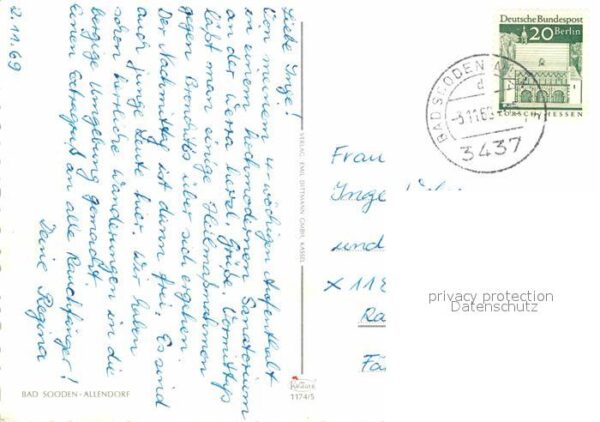 2.11.69
Liebe Inge!
Von meinem 4-wöchigen Aufenthalt
in einem hochmodernen Sanatorium
an der Werra herzl. Grüße. Vormittags
läßt man einige Heilmaßnahmen
gegen Bronchitis über sich ergehen.
Der Nachmittag ist dann frei. Es sind
auch junge Leute hier. Wir haben
schon herrliche Wanderungen in die
bergige Umgebung gemacht.
Einen Extragruß an alle Rauchfänger!
Deine Regina
BAD SOODEN-ALLENDORF
VERLAG EMIL DITTMANN GMBH, KASSEL
1174/5
Deutsche Bundespost
20 Berlin
LORSCH/HESSEN
BAD SOODEN
d
-3.11.69
3437
Frau
Inge
und
X 118
Ra
Fä
privacy protection
Datenschutz